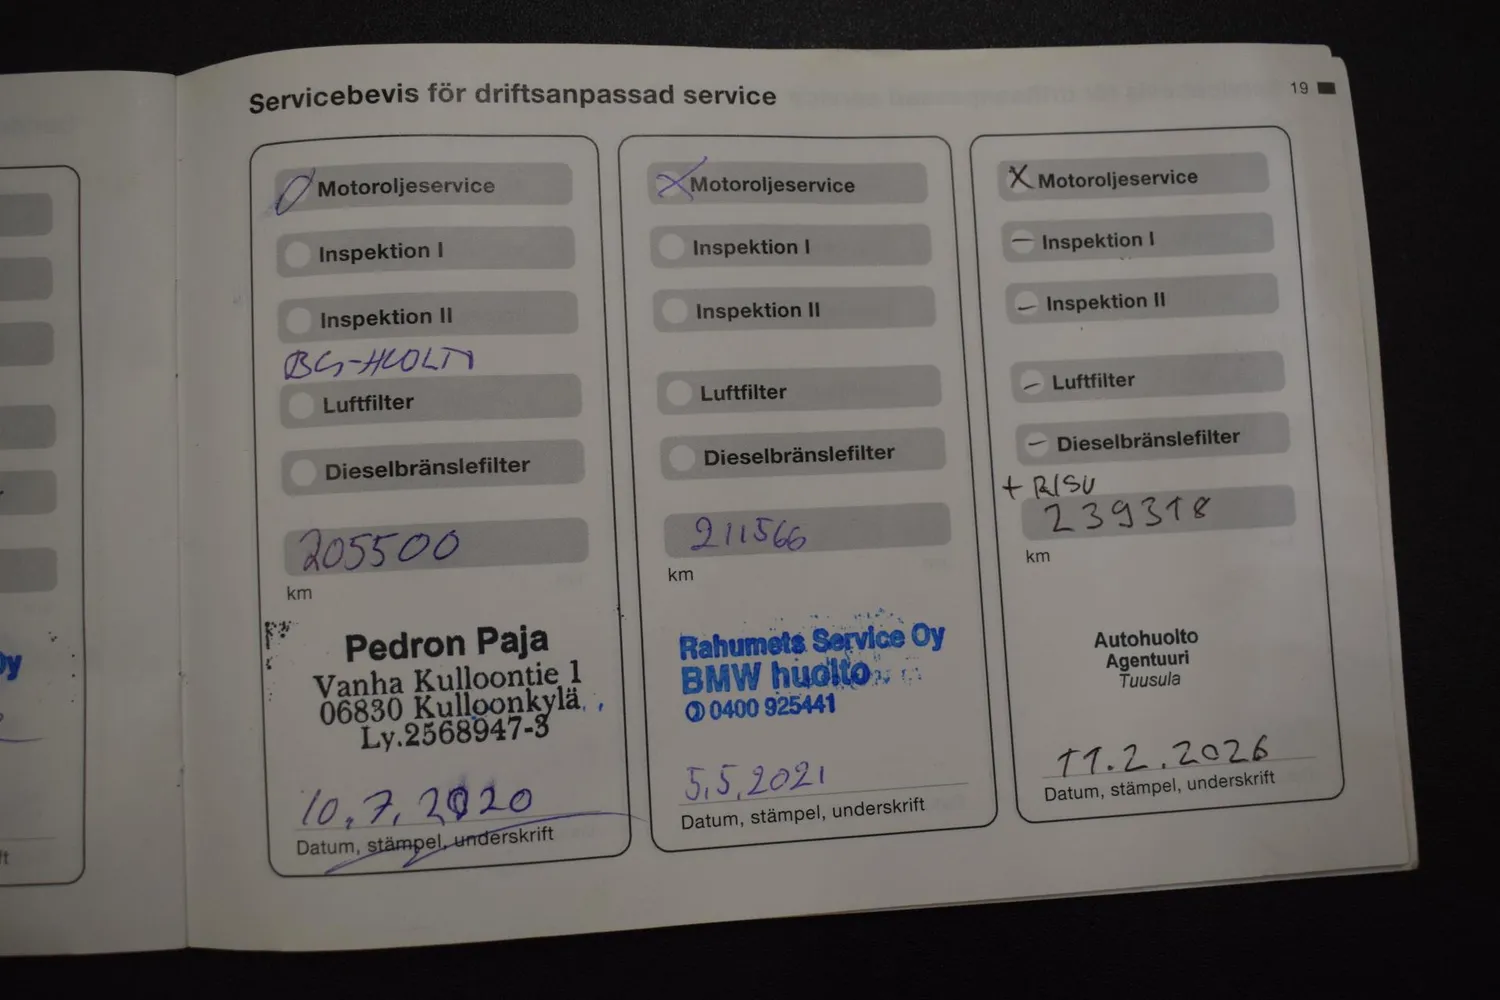 Servicebevis för driftsanpassad service
19
Motoroljeservice
Inspektion I
Inspektion II
BG-HUOLTO
Luftfilter
Dieselbränslefilter
205500
km
Pedron Paja
Vanha Kulloontie 1
06830 Kulloonkylä
Ly.2568947-3
10.7.2020
Datum, stämpel, underskrift
X Motoroljeservice
Inspektion I
Inspektion II
Luftfilter
Dieselbränslefilter
211566
km
Rahumets Service Oy
BMW huolto
0400 925441
5.5.2021
Datum, stämpel, underskrift
X Motoroljeservice
– Inspektion I
– Inspektion II
– Luftfilter
– Dieselbränslefilter
+ RISU
239318
km
Autohuolto
Agentuuri
Tuusula
11.2.2026
Datum, stämpel, underskrift